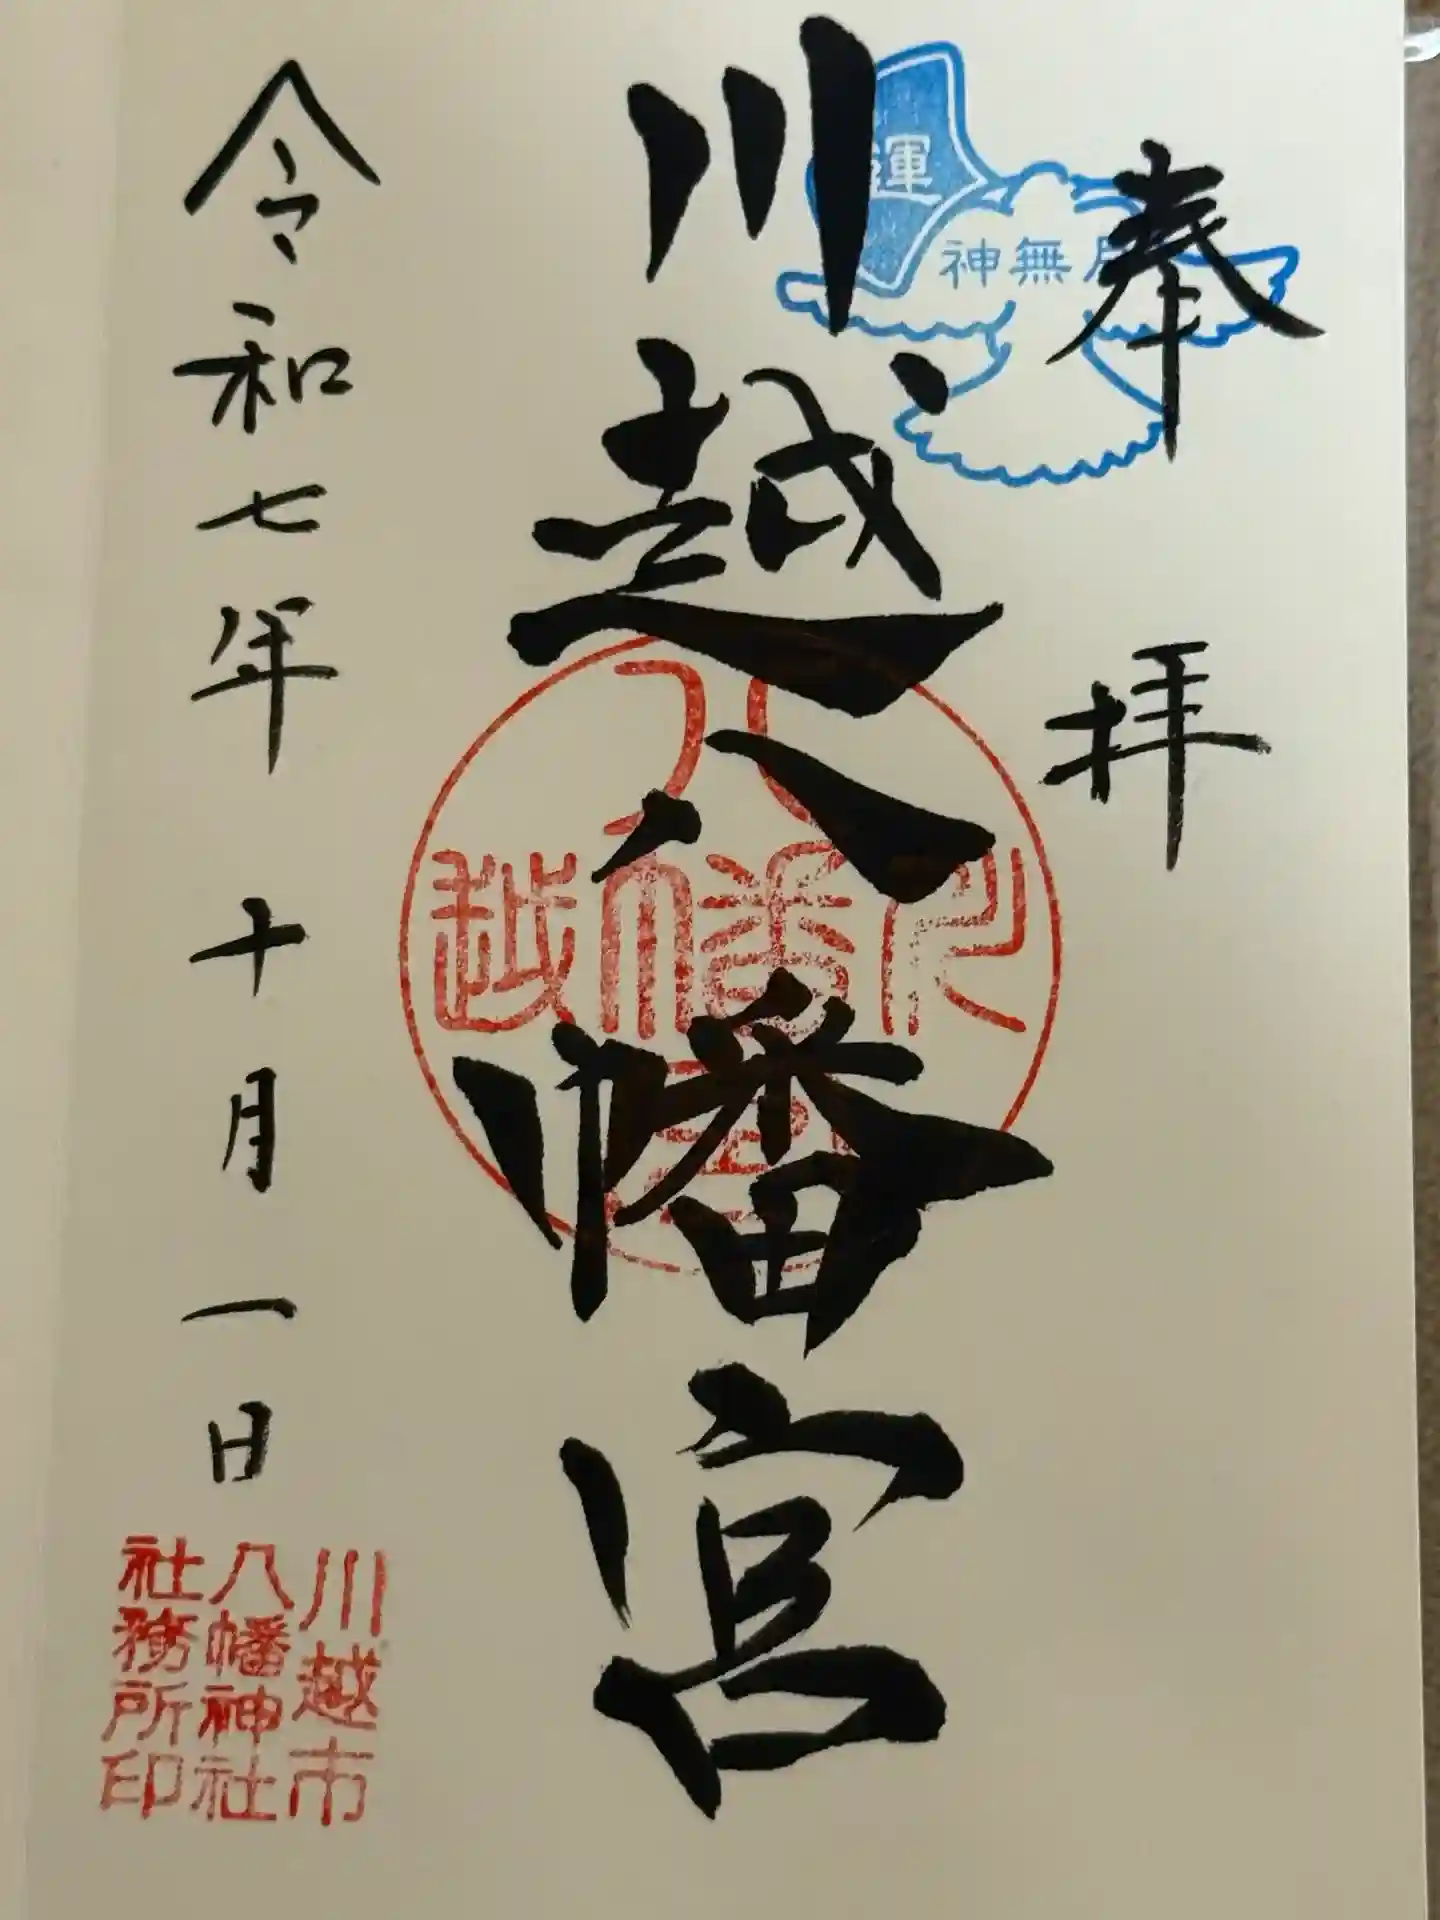 奉拝
運
神無月
川越八幡宮
八
越幡川
宮
令和七年十月一日
川越市
八幡神社
社務所印